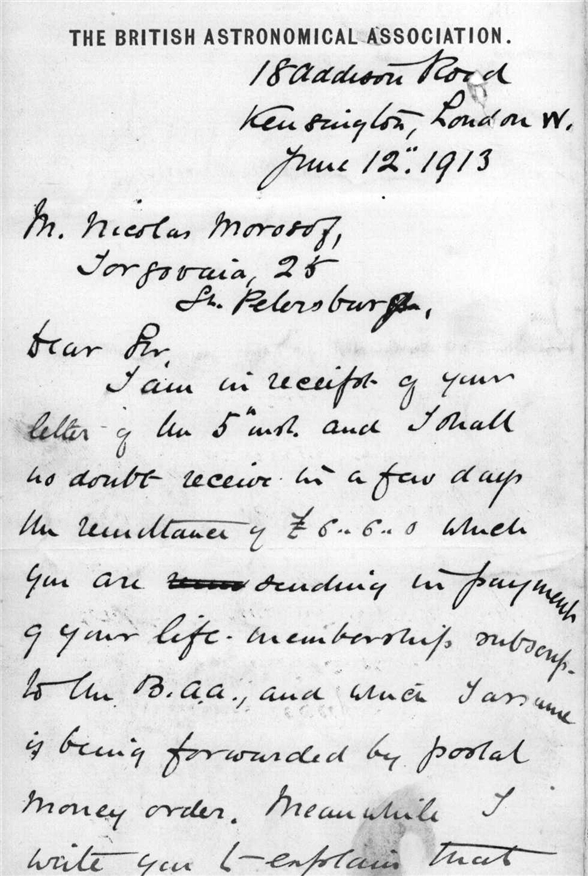 THE BRITISH ASTRONOMICAL ASSOCIATION.
18 Addison Road
Kensington, London W.
June 12". 1913
M. Nicolas Morosof,
Torgovaia, 25
St. Petersburg,
Dear Sir
I am in receipt of your
letter of the 5" inst. and I shall
no doubt receive in a few days
the remittance of £6..6..0 which
you are sending in payment
of your life-membership subscrip-
to the B.A.A., and which I assume
is being forwarded by postal
money order. Meanwhile I
write you to explain that